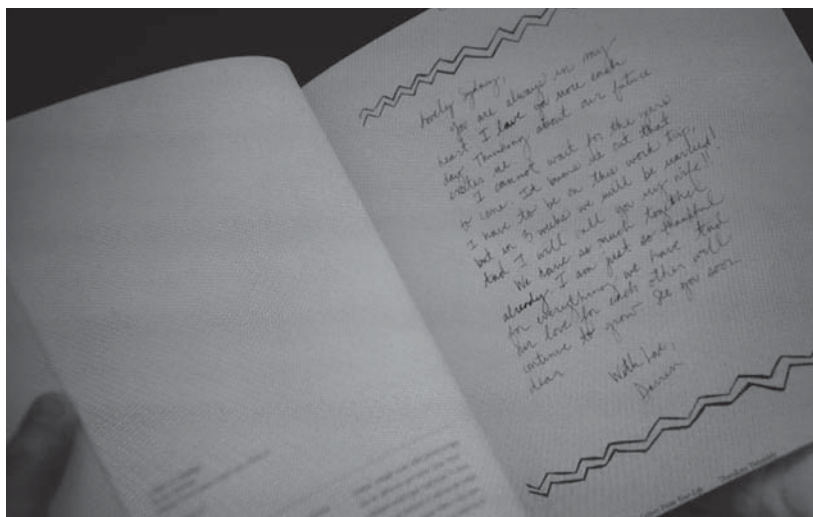 Lovely Sydney,
You are always in my
heart I love you more each
day Thinking about our future
excites me
I cannot wait for the years
to come. It bums me out that
I have to be on this work trip,
but in 3 weeks we will be married!
And I will call you my wife!!
We have so much together
already I am just so thankful
for everything we have And
our love for each other will
continue to grow See you soon
dear
With Love,
Darren